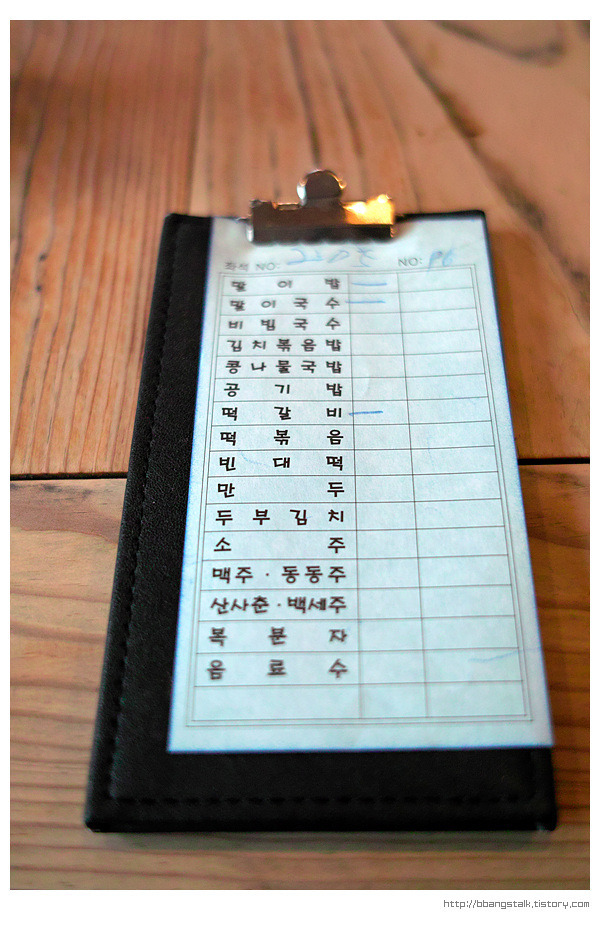 좌석 NO: NO:
말이밥
말이국수
비빔국수
김치볶음밥
콩나물국밥
공기밥
떡갈비
떡볶음
빈대떡
만두
두부김치
소주
맥주·동동주
산사춘·백세주
복분자
음료수
http://bbangstalk.tistory.com